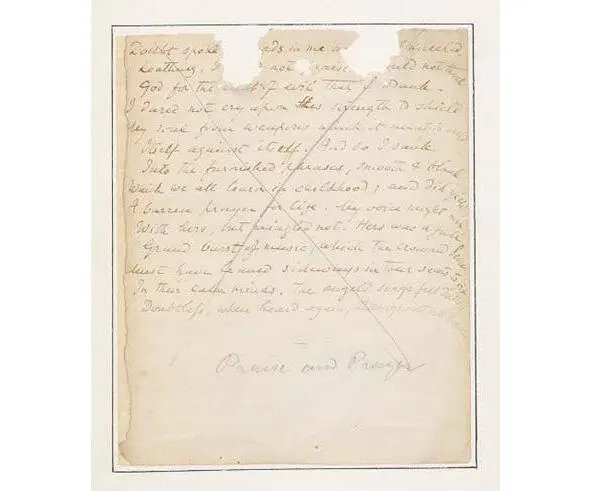 Doubt spoke ds in me kneeled
Loathing, I not praise could not
God for the of evil that I drank.
I dared not cry upon His strength to shield
My soul from weapons which it meant to
Itself against itself. And so I sank
Into the furnished phrases, smooth & blank
Which we all learn in childhood; and did yield
A barren prayer for life. My voice might mix
With hers, but mingled not. Hers was a full
Grand burst of music which the crowned
Must have leaned sideways in their seats to fix
In their calm minds. The angels songs fell dull
Doubtless, when heard again, throughout
Praise and Prayer